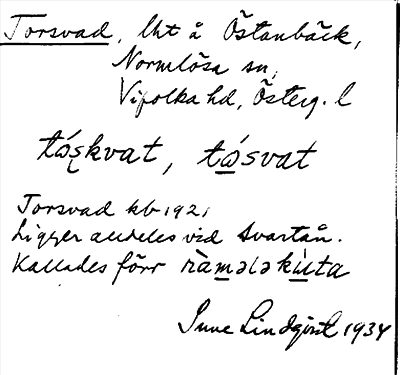 Torsvad, lht å Östanbäck,
Normlösa sn,
Vifolka hd, Österg. l
tóskvat, tósvat
Torsvad kb 1921
Ligger alldeles vid Svartån.
Kallades förr ràmələkùta
Sune Lindqvist 1934